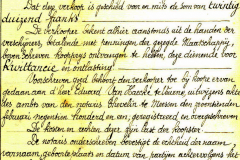 Dat dezen verkoop is geschied voor en mits de som van twintig
duizend franks.
De verkooper erkent alhier aanstonds uit de handen der
verschijners, betalende met penningen der gezegde Maatschappij,
dezen verkoop koopprijs ontvangen te hebben, deze dienende voor
kwitancie, in ontlasting
Voorschreven goed behoort den verkooper toe bij koop ervan
gedaan aan d'heer Edward Van Hassel te Lueven, uitwijzens akte
des ambts van den notaris Chevelin te Mersen den zeventienden
februari negentien honderd en een, geregistreerd en overgeschreven
De kosten en rechten dezer zijn last der koopster
De notaris ondergeteekende bevestigt de echtheid der naam
voornaam, geboorteplaats en datum van partijen achtervolgens het